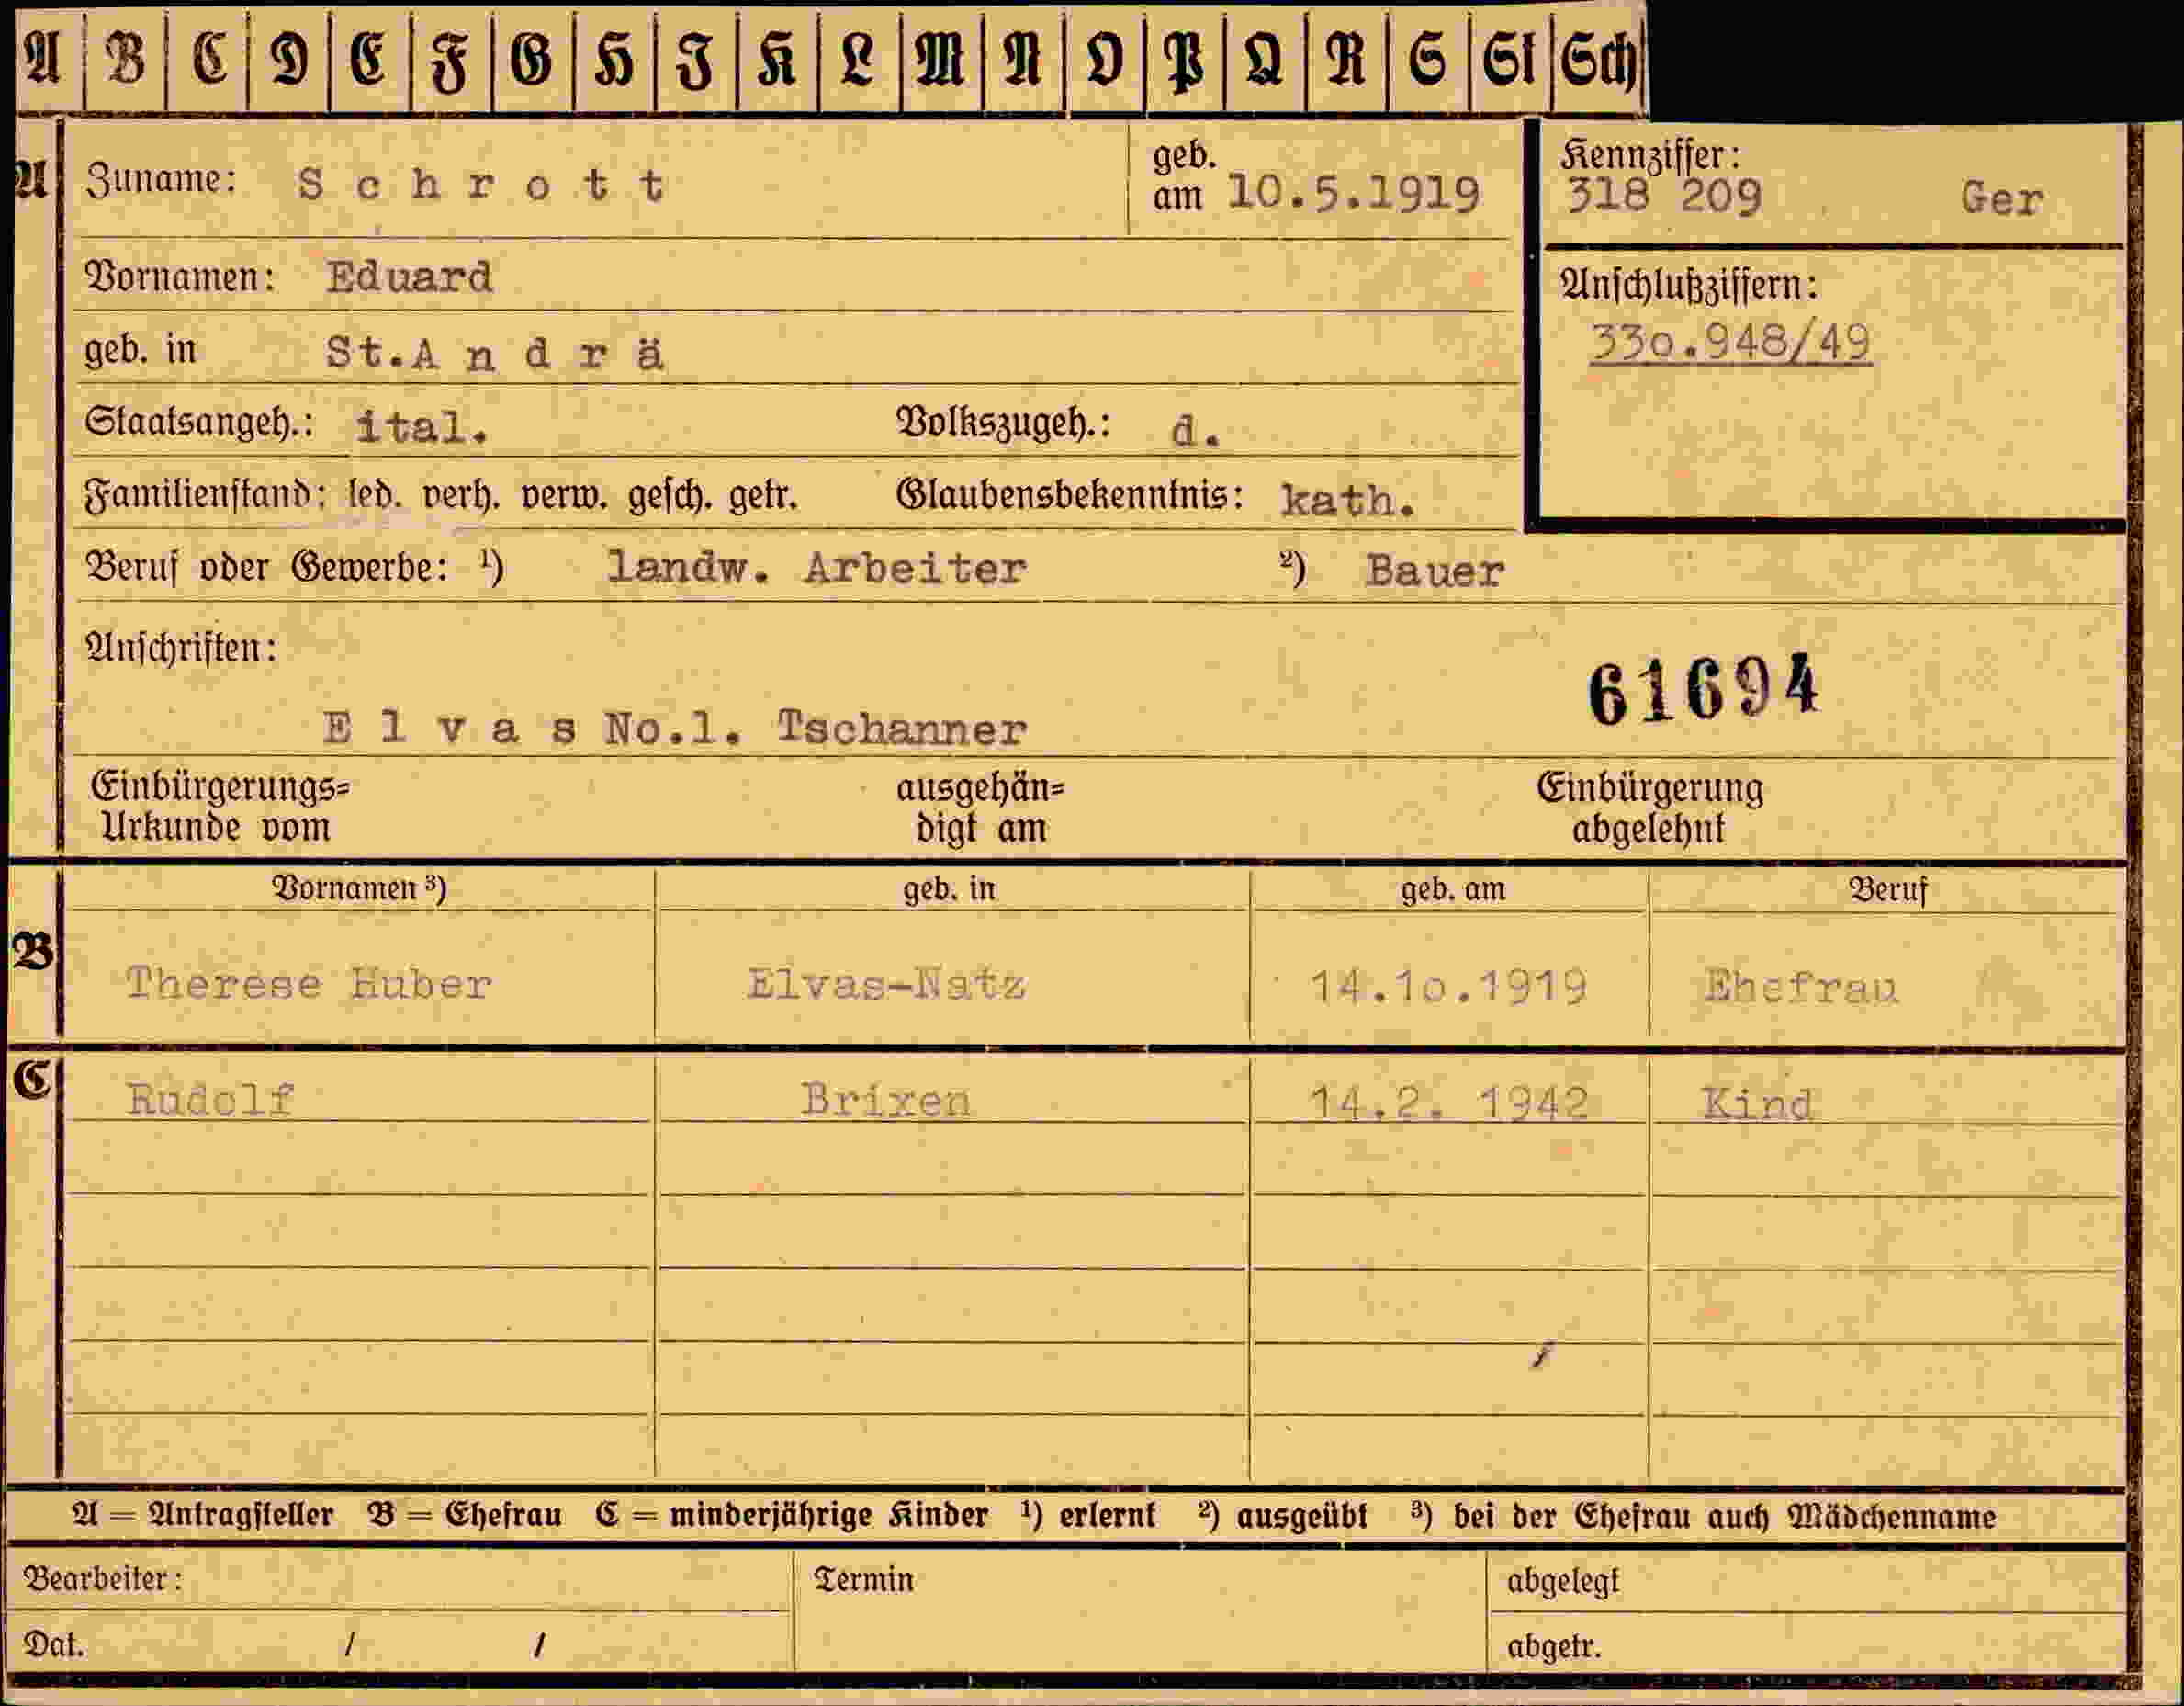 A B C D E F G H J K L M N O P Q R S St Sch
A Zuname: Schrott geb. am 10.5.1919 Kennziffer: 318 209 Ger
Vornamen: Eduard
geb. in St.Andrä
Anschlußziffern:
33o.948/49
Staatsangeh.: ital. Volkszugeh.: d.
Familienstand: led. verh. verw. gesch. getr. Glaubensbekenntnis: kath.
Beruf oder Gewerbe: ¹) landw. Arbeiter ²) Bauer
Anschriften:
61694
Elvas No.1. Tschanner
Einbürgerungs= ausgehän= Einbürgerung
Urkunde vom digt am abgelehnt
Vornamen ³) geb. in geb. am Beruf
B Therese Huber Elvas-Natz 14.1o.1919 Ehefrau
C Rudolf Brixen 14.2. 1942 Kind
A = Antragsteller B = Ehefrau C = minderjährige Kinder ¹) erlernt ²) ausgeübt ³) bei der Ehefrau auch Mädchenname
Bearbeiter: Termin abgelegt
Dat. / / abgetr.